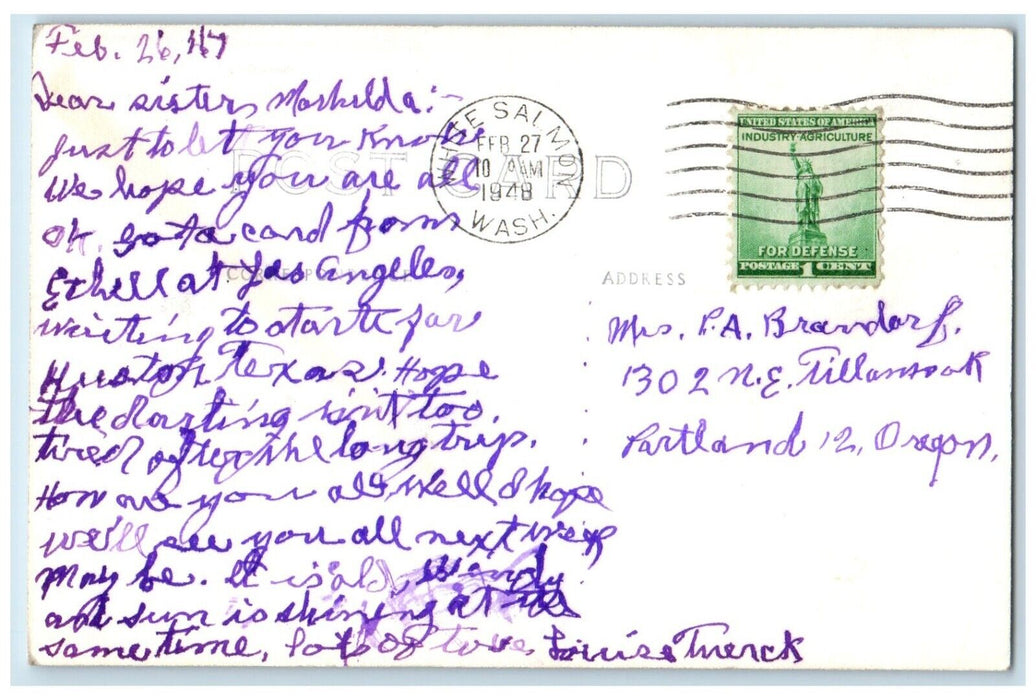 Feb. 26, 47
Dear sister, Mathilda:-
Just to let you Know
We hope you are all
ok. got a card from
Ethell at Los Angeles,
writing to starte for
Huston Texas. Hope
the darling isn't too.
tired after the long trip.
How are you all, well & hope
we'll see you all next week
May be. It is old, windy
and sun is shining at the
same time, lots of love, Louise Tuerck
POST CARD
CORRESPONDENCE
ADDRESS
WHITE SALMON
FEB 27
10 AM
1948
WASH.
UNITED STATES OF AMERICA
INDUSTRY AGRICULTURE
FOR DEFENSE
POSTAGE 1 CENT
Mrs. P. A. Brandorf.
1302 N.E. Tillamook
Portland 12, Oregon,